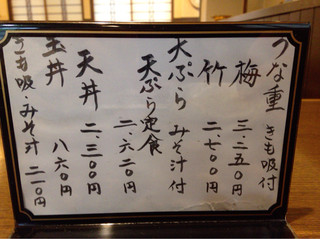 うな重 きも吸付
梅 三、二五〇円
竹 二、七〇〇円
天ぷら みそ汁付
天ぷら定食 二、六二〇円
天丼 二、三〇〇円
玉丼 八六〇円
きも吸 みそ汁 二一〇円